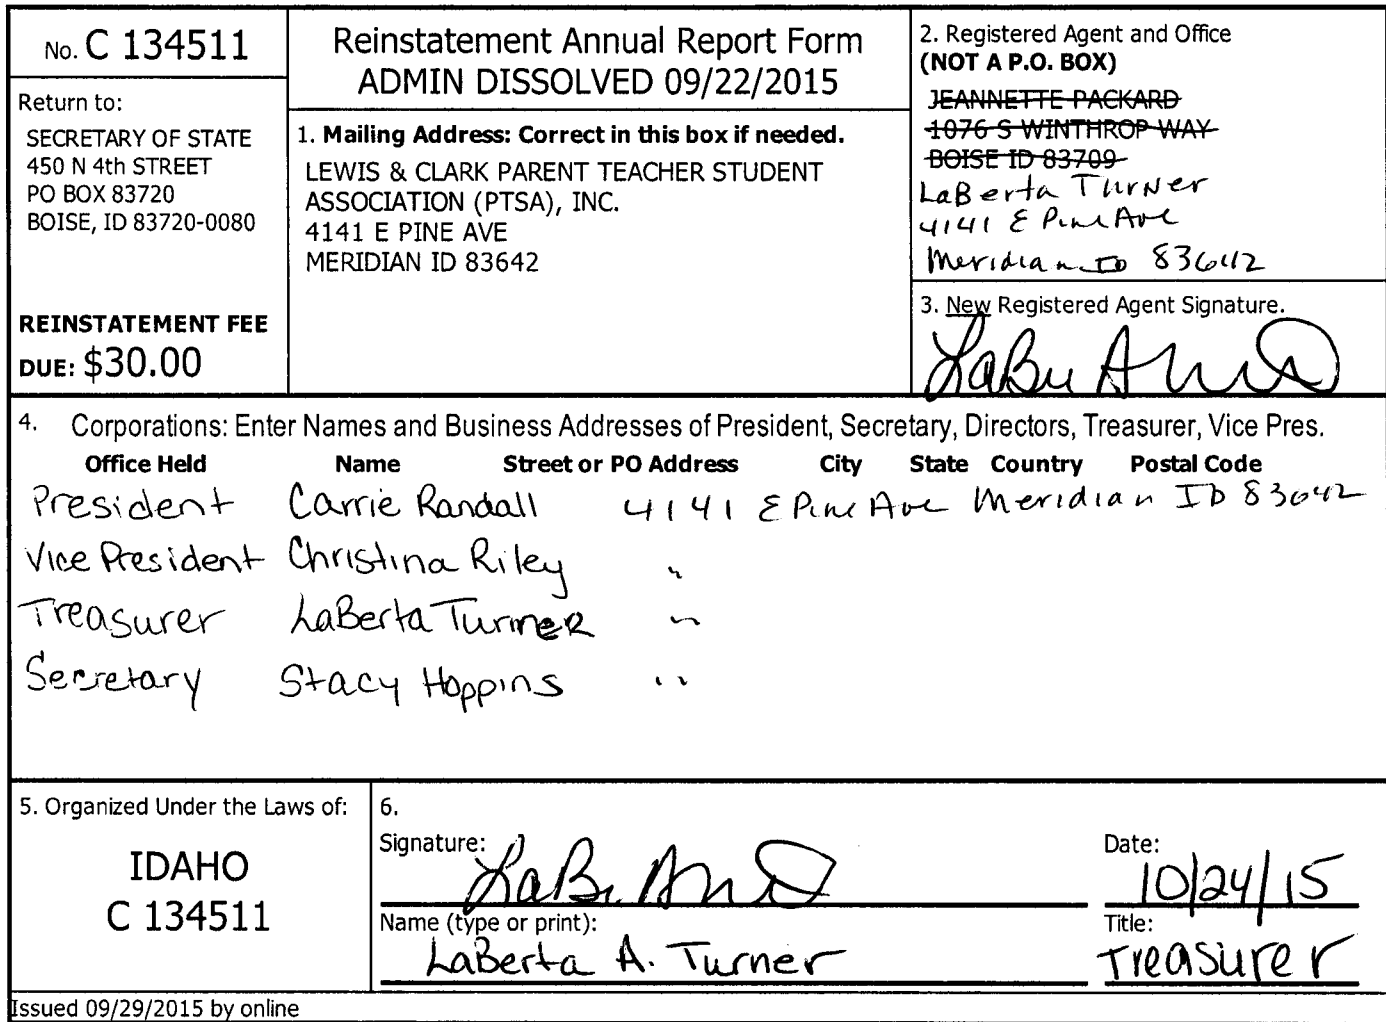 No. C 134511
Return to:
SECRETARY OF STATE
450 N 4th STREET
PO BOX 83720
BOISE, ID 83720-0080
REINSTATEMENT FEE
DUE: $30.00
Reinstatement Annual Report Form
ADMIN DISSOLVED 09/22/2015
1. Mailing Address: Correct in this box if needed.
LEWIS & CLARK PARENT TEACHER STUDENT
ASSOCIATION (PTSA), INC.
4141 E PINE AVE
MERIDIAN ID 83642
2. Registered Agent and Office
(NOT A P.O. BOX)
JEANNETTE PACKARD
1076 S WINTHROP WAY
BOISE ID 83709
LaBerta Turner
4141 E Pine Ave
Meridian ID 83642
3. New Registered Agent Signature.
4. Corporations: Enter Names and Business Addresses of President, Secretary, Directors, Treasurer, Vice Pres.
Office Held Name Street or PO Address City State Country Postal Code
President Carrie Randall 4141 E Pine Ave Meridian ID 83642
Vice President Christina Riley "
Treasurer LaBerta Turner "
Secretary Stacy Hoppins "
5. Organized Under the Laws of:
IDAHO
C 134511
6.
Signature:
Date:
10/24/15
Name (type or print):
LaBerta A. Turner
Title:
Treasurer
Issued 09/29/2015 by online